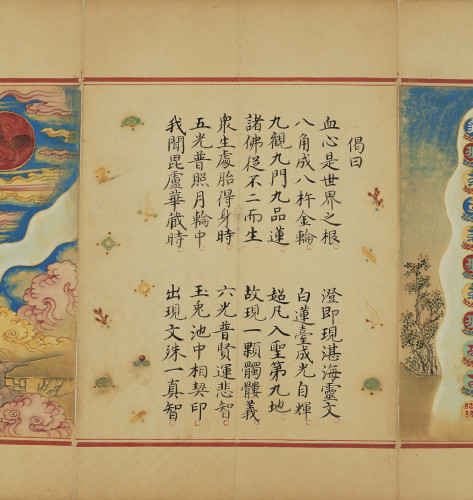 偈曰
血心是世界之根 澄即現湛海靈文
八角成八杵金輪 白蓮臺成光自輝
九觀九門九品蓮 超凡入聖第九地
諸佛從不二而生 故現一顆髑髏義
衆生處胎得身時 六光普賢運悲智
五光普照月輪中 玉兔池中相契印
我聞毘盧華藏時 出現文殊一真智